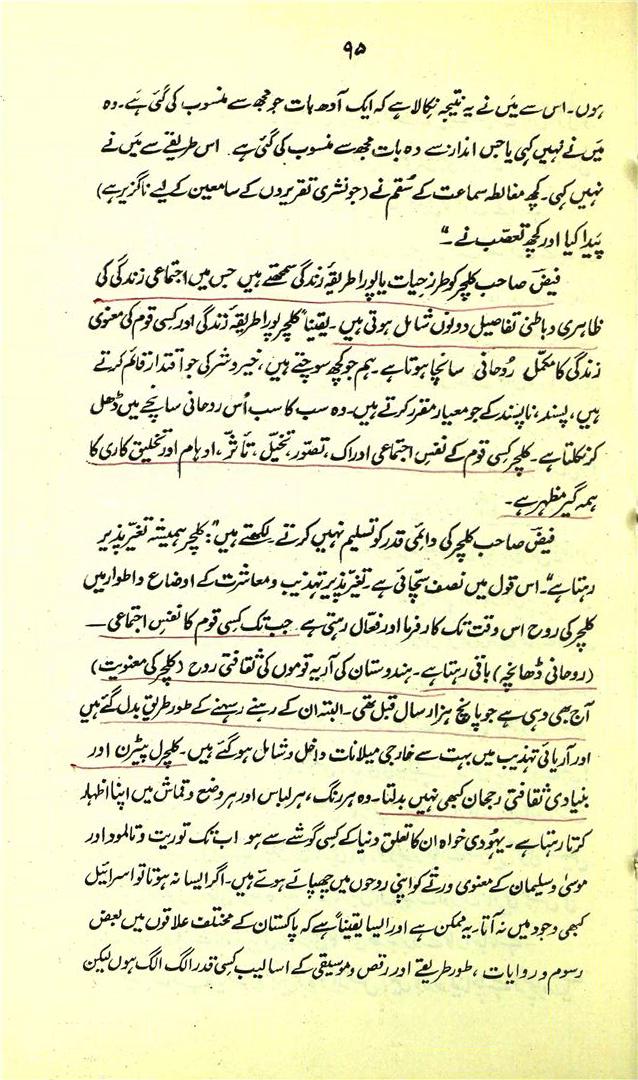 ۹۵
ہوں۔ اس سے میَں نے یہ نتیجہ نکالا ہے کہ ایک آدھ بات جو مجھ سے منسوب کی گئی ہے۔ وہ
میَں نے نہیں کہی یا جس انداز سے وہ بات مجھ سے منسوب کی گئی ہے۔ اس طریقے سے میَں نے
نہیں کہی۔ کچھ مغالطہ سماعت کے سُقم نے (جو نشری تقریروں کے سامعین کے لیے ناگزیر ہے)
پَیدا کیا اور کچھ تعصّب نے۔"
فیضؔ صاحب کلچر کو طرزِ حیات یا پورا طریقۂ زندگی سمجھتے ہیں جس میں اجتماعی زندگی کی
ظاہری و باطنی تفاصیل دونوں شامل ہوتی ہیں۔ یقیناً "کلچر پورا طریقۂ زندگی اور کسی قوم کی معنوی
زندگی کا مکمّل رُوحانی سانچا ہوتا ہے۔ ہم جو کچھ سوچتے ہیں، خیر و شر کی جو اقدار قائم کرتے
ہیں، پسند، ناپسند کے جو معیار مقرر کرتے ہیں۔ وہ سب کا سب اُس روحانی سانچے میں ڈھل
کر نکلتا ہے۔ کلچر کسی قوم کے نفسِ اجتماعی ادراک، تصوّر، تخیّل، تأثّر، اوہام اور تخلیق کاری کا
ہمہ گیر مظہر ہے۔
فیضؔ صاحب کلچر کی دائمی قدر کو تسلیم نہیں کرتے۔ لکھتے ہیں": کلچر ہمیشہ تغیّر پذیر
رہتا ہے"۔ اس قول میں نصف سچّائی ہے۔ تغیّر پذیر تہذیب و معاشرت کے اوضاع و اطوار میں
کلچر کی روح اس وقت تک کارفرما اور فعّال رہتی ہے جب تک کسی قوم کا نفسِ اجتماعی —
(روحانی ڈھانچہ) باقی رہتا ہے۔ ہندوستان کی آریہ قوموں کی ثقافتی روح (کلچر کی معنویت)
آج بھی وہی ہے جو پانچ ہزار سال قبل تھی۔ البتہ ان کے رہنے رہسنے کے طور طریق بدل گئے ہیں
اور آریائی تہذیب میں بہت سے خارجی میلانات داخل و شامل ہو گئے ہیں۔ کلچرل پیٹرن اور
بنیادی ثقافتی رجحان کبھی نہیں بدلتا۔ وہ ہر رنگ، ہر لباس اور ہر وضع و قماش میں اپنا اظہار
کرتا رہتا ہے۔ یہُودی خواہ ان کا تعلق دنیا کے کسی گوشے سے ہو اب تک توریت و تالمود اور
موسیٰ و سلیمان کے معنوی ورثے کو اپنی روحوں میں چھپائے ہوئے ہیں۔ اگر ایسا نہ ہوتا تو اسرائیل
کبھی وجود میں نہ آتا۔ یہ ممکن ہے اور ایسا یقیناً ہے کہ پاکستان کے مختلف علاقوں میں بعض
رسوم و روایات، طور طریقے اور رقص و موسیقی کے اسالیب کسی قدر الگ الگ ہوں لیکن